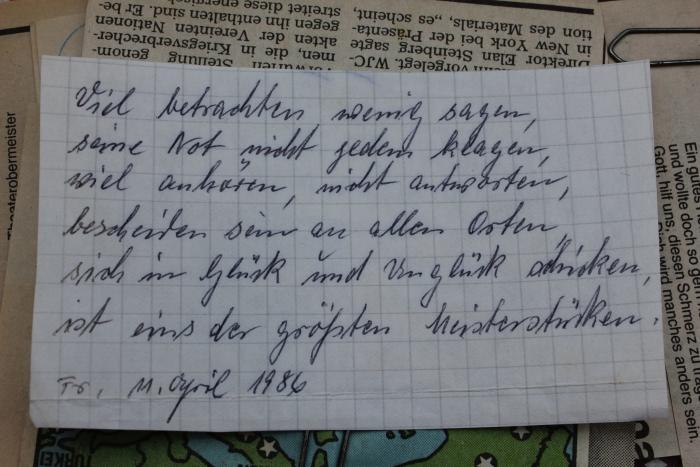 Viel betrachten, wenig sagen,
seine Not nicht jedem klagen,
viel anhören, nicht antworten,
bescheiden sein an allen Orten,
sich in Glück und Unglück schicken,
ist eins der größten Meisterstücken.
Fr. 11. April 1986
streitet diese
gegen ihn enthalten sind. Er be-
akten der Vereinten Nationen
men, die in Kriegsverbrecher-
Stellung genom-
tion des Materials, „es scheint,
in New York bei der Präsenta-
Direktor Elan Steinberg sagte
vorgelegt. WJC-
Theaterobermeister
Ein gutes
und wollte doch so gern
Gott, hilf uns, diesen Schmerz zu
wird manches anders sein,